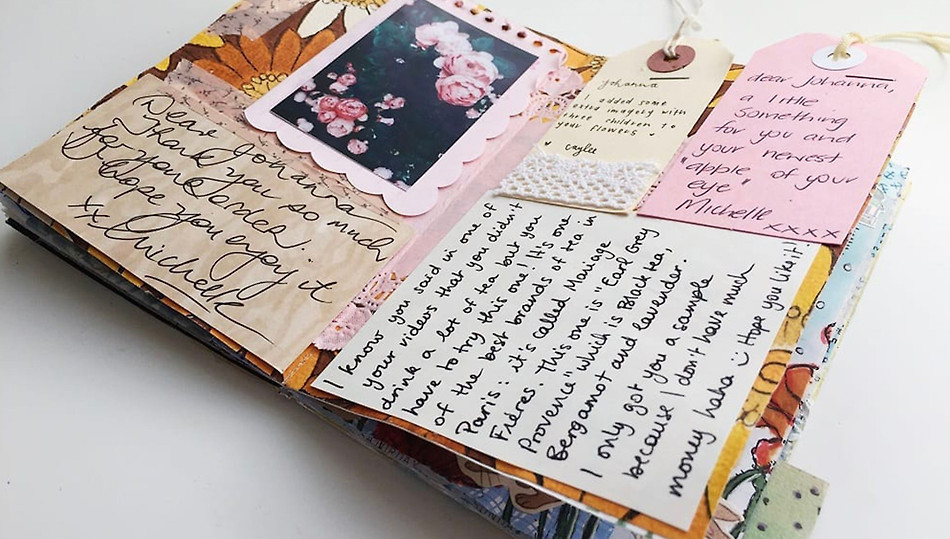 Dear Johanna
Thank you so much
for your order.
Hope you enjoy it
xx Michelle
Johanna
added some
extra imagery with
three children to
your flowers
♥ caylee
dear Johanna,
a little
something
for you and
your newest
"apple of your
eye"
Michelle
xxxx
I know you said in one of
your videos that you didn't
drink a lot of tea but you
have to try this one! It's one
of the best brands of tea in
Paris: it's called Mariage
Frères. This one is "Earl Grey
Provence" which is Black tea,
Bergamot and lavender.
I only got you a sample
because I don't have much
money haha :) Hope you like it!